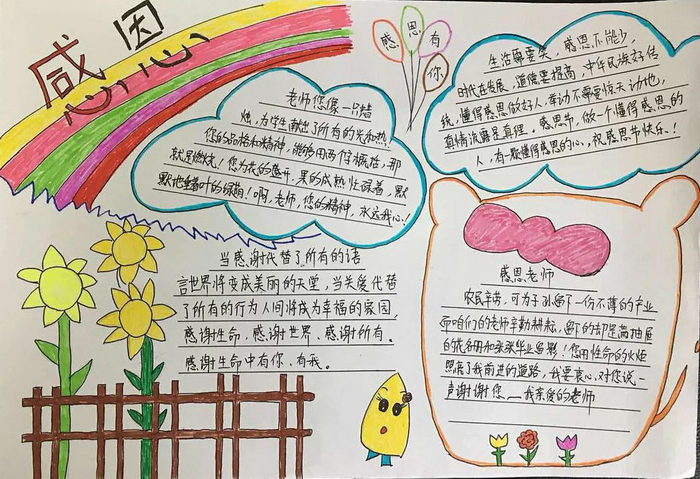 感恩
感恩有你
老师您像一只蜡
烛,为学生献出了所有的光和热!
您的品格和精神,能够用两个字概括,那
就是燃烧!您为花的盛开,果的成熟忙碌着,默
默地垂着叶的绿荫!啊,老师,您的精神,永远我心!
生活需要笑,感恩不能少,
时代在发展,道德要提高,中华民族好传
统,懂得感恩做好人,举动不需要惊天动地,
真情流露是真理。感恩节,做一个懂得感恩的
人,有一颗懂得感恩的心,祝感恩节快乐!
当感谢代替了所有的语
言世界将变成美丽的天堂,当关爱代替
了所有的行为人间将成为幸福的家园,
感谢生命,感谢世界、感谢所有。
感谢生命中有你、有我。
感恩老师
农民辛劳,可为子孙留下一份不薄的产业
而咱们的老师辛勤耕耘,留下的却是满抽屉
的花名册和张张毕业留影!您用性命的火炬
照亮了我前进的道路,我要衷心对您说一
声谢谢您——我亲爱的老师